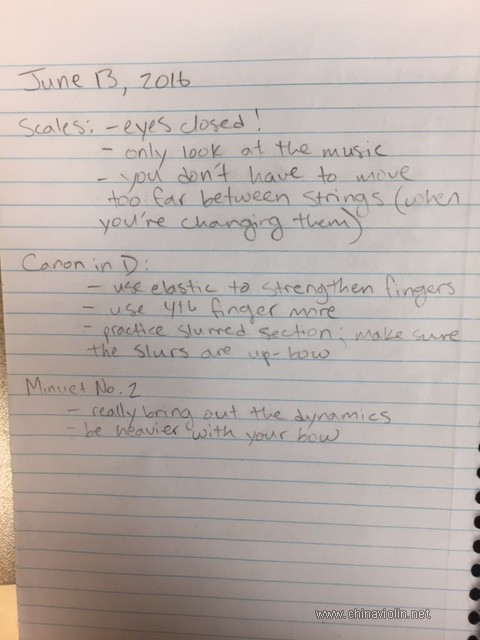 June 13, 2016
Scales: - eyes closed!
- only look at the music
- you don't have to move
too far between strings (when
you're changing them)
Canon in D:
- use elastic to strengthen fingers
- use 4th finger more
- practice slurred section; make sure
the slurs are up-bow
Minuet No. 2
- really bring out the dynamics
- be heavier with your bow
www.chinaviolin.net